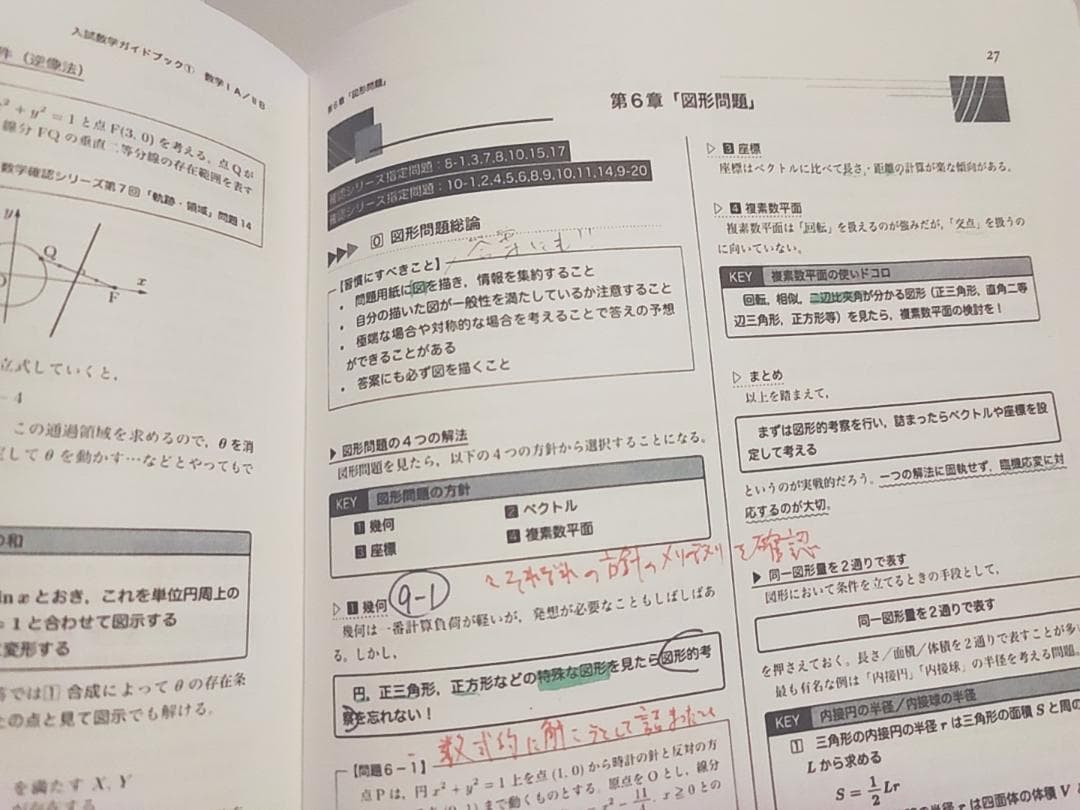 入試数学ガイドブック① 数学ⅠA／ⅡB
件（逆像法）
x² + y² = 1 と点 F(3, 0) を考える。点 Q が
線分 FQ の垂直二等分線の存在範囲を表す
数学確認シリーズ第7回「軌跡・領域」問題 14
y
Q
x
F
立式していくと，
－ 4
この通過領域を求めるので，θ を消
して θ を動かす…などとやってもで
の和
in x とおき，これを単位円周上の
= 1 と合わせて図示する
変形する
等では 1 合成によって θ の存在条
との点と見て図示でも解ける。
を満たす X, Y
が存在する
第6章「図形問題」
27
第6章「図形問題」
確認シリーズ指定問題：8-1,3,7,8,10,15,17
確認シリーズ指定問題：10-1,2,4,5,6,8,9,10,11,14,9-20
0 図形問題総論
【習慣にすべきこと】
・ 問題用紙に図を描き，情報を集約すること
・ 自分の描いた図が一般性を満たしているか注意すること
・ 極端な場合や対称的な場合を考えることで答えの予想
ができることがある
・ 答案にも必ず図を描くこと
図形問題の4つの解法
図形問題を見たら，以下の4つの方針から選択することになる。
KEY 図形問題の方針
1 幾何 2 ベクトル
3 座標 4 複素数平面
それぞれの方針のメリデメリを確認
1 幾何 9-1
幾何は一番計算負荷が軽いが，発想が必要なこともしばしばあ
る。しかし，
円，正三角形，正方形などの特殊な図形を見たら図形的考
察を忘れない！
数式的に解こうとして詰まったら
【問題6－1】
点 P は，円 x² + y² = 1 上を点 (1, 0) から時計の針と反対の方
まで動くものとする。原点を O とし，線分
3 座標
座標はベクトルに比べて長さ・距離の計算が楽な傾向がある。
4 複素数平面
複素数平面は「回転」を扱えるのが強みだが，「交点」を扱うの
に向いていない。
KEY 複素数平面の使いドコロ
回転，相似，二辺比夾角が分かる図形（正三角形，直角二等
辺三角形，正方形等）を見たら，複素数平面の検討を！
まとめ
以上を踏まえて，
まずは図形的考察を行い，詰まったらベクトルや座標を設
定して考える
というのが実戦的だろう。一つの解法に固執せず，臨機応変に対
応するのが大切。
同一図形量を2通りで表す
図形において条件を立てるときの手段として，
同一図形量を2通りで表す
を押さえておく。長さ／面積／体積を2通りで表すことが多
最も有名な例は「内接円」「内接球」の半径を考える問題。
KEY 内接円の半径／内接球の半径
1 三角形の内接円の半径 r は三角形の面積 S と周の
L から求める
S = 1/2 Lr
の半径 r は四面体の体積 V と